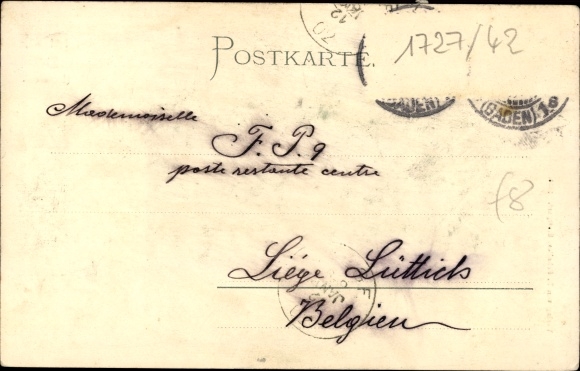 POSTKARTE.
1727/42
(BADEN)
(BADEN) 1e
Mademoiselle
F. P. 9
poste restante centre
f8
Liége Lüttich
Belgien